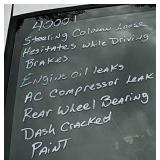 40001
Steering Column Loose
Hesitates while Driving
Brakes
Engine oil leaks
AC Compressor Leak
Rear Wheel Bearing
Dash Cracked
Paint